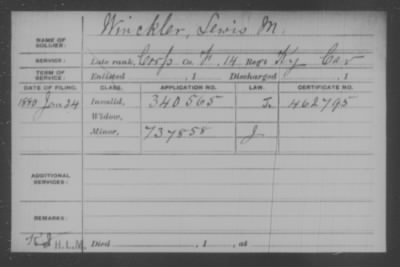 NAME OF SOLDIER: Winckler, Lewis M.
SERVICE: Late rank, Corp Co. F, 14 Reg't Ky Cav
TERM OF SERVICE: Enlisted , 1 Discharged , 1
DATE OF FILING. CLASS. APPLICATION NO. LAW. CERTIFICATE NO.
1880 Jan 24 Invalid, 340565 J. 462795
Widow,
Minor, 737858 J
ADDITIONAL SERVICES:
REMARKS:
H.L.M. Died , 1 , at